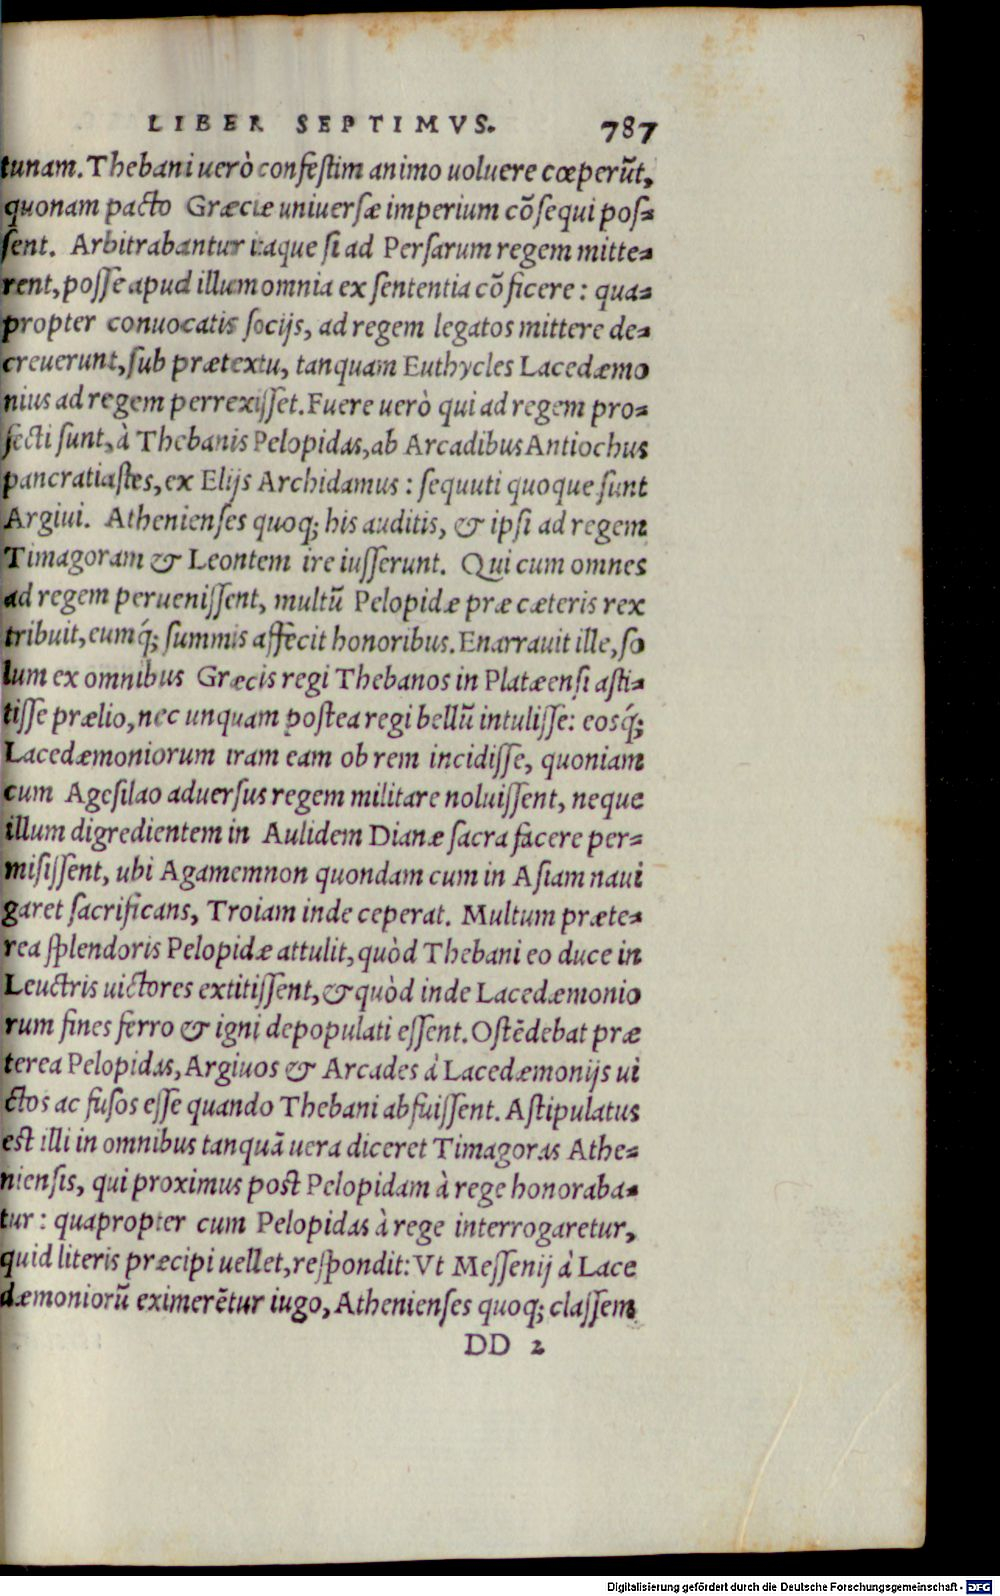 LIBER SEPTIMVS. 787
tunam. Thebani uerò confeſtim animo uoluere cœperũt,
quonam pacto Græciæ uniuerſæ imperium cõſequi poſ-
ſent. Arbitrabantur itaque ſi ad Perſarum regem mitte-
rent, poſſe apud illum omnia ex ſententia cõficere: qua-
propter conuocatis ſocijs, ad regem legatos mittere de-
creuerunt, ſub prætextu, tanquam Euthycles Lacedæmo
nius ad regem perrexiſſet. Fuere uerò qui ad regem pro-
fecti ſunt, à Thebanis Pelopidas, ab Arcadibus Antiochus
pancratiaſtes, ex Elijs Archidamus: ſequuti quoque ſunt
Argiui. Athenienſes quoq; his auditis, & ipſi ad regem
Timagoram & Leontem ire iuſſerunt. Qui cum omnes
ad regem perueniſſent, multũ Pelopidæ præ cæteris rex
tribuit, eumq́; ſummis affecit honoribus. Enarrauit ille, ſo
lum ex omnibus Græcis regi Thebanos in Platæenſi aſti-
tiſſe prælio, nec unquam poſtea regi bellũ intuliſſe: eosq́;
Lacedæmoniorum iram eam ob rem incidiſſe, quoniam
cum Ageſilao aduerſus regem militare noluiſſent, neque
illum digredientem in Aulidem Dianæ ſacra facere per-
miſiſſent, ubi Agamemnon quondam cum in Aſiam naui
garet ſacrificans, Troiam inde ceperat. Multum præte-
rea ſplendoris Pelopidæ attulit, quòd Thebani eo duce in
Leuctris uictores extitiſſent, & quòd inde Lacedæmonio
rum fines ferro & igni depopulati eſſent. Oſtẽdebat præ
terea Pelopidas, Argiuos & Arcades à Lacedæmonijs ui
ctos ac fuſos eſſe quando Thebani abfuiſſent. Aſtipulatus
eſt illi in omnibus tanquã uera diceret Timagoras Athe-
nienſis, qui proximus poſt Pelopidam à rege honoraba-
tur: quapropter cum Pelopidas à rege interrogaretur,
quid literis præcipi uellet, reſpondit: Vt Meſſenij à Lace
dæmoniorũ eximerẽtur iugo, Athenienſes quoq; claſſem
DD 2
Digitalisierung gefördert durch die Deutsche Forschungsgemeinschaft - DFG